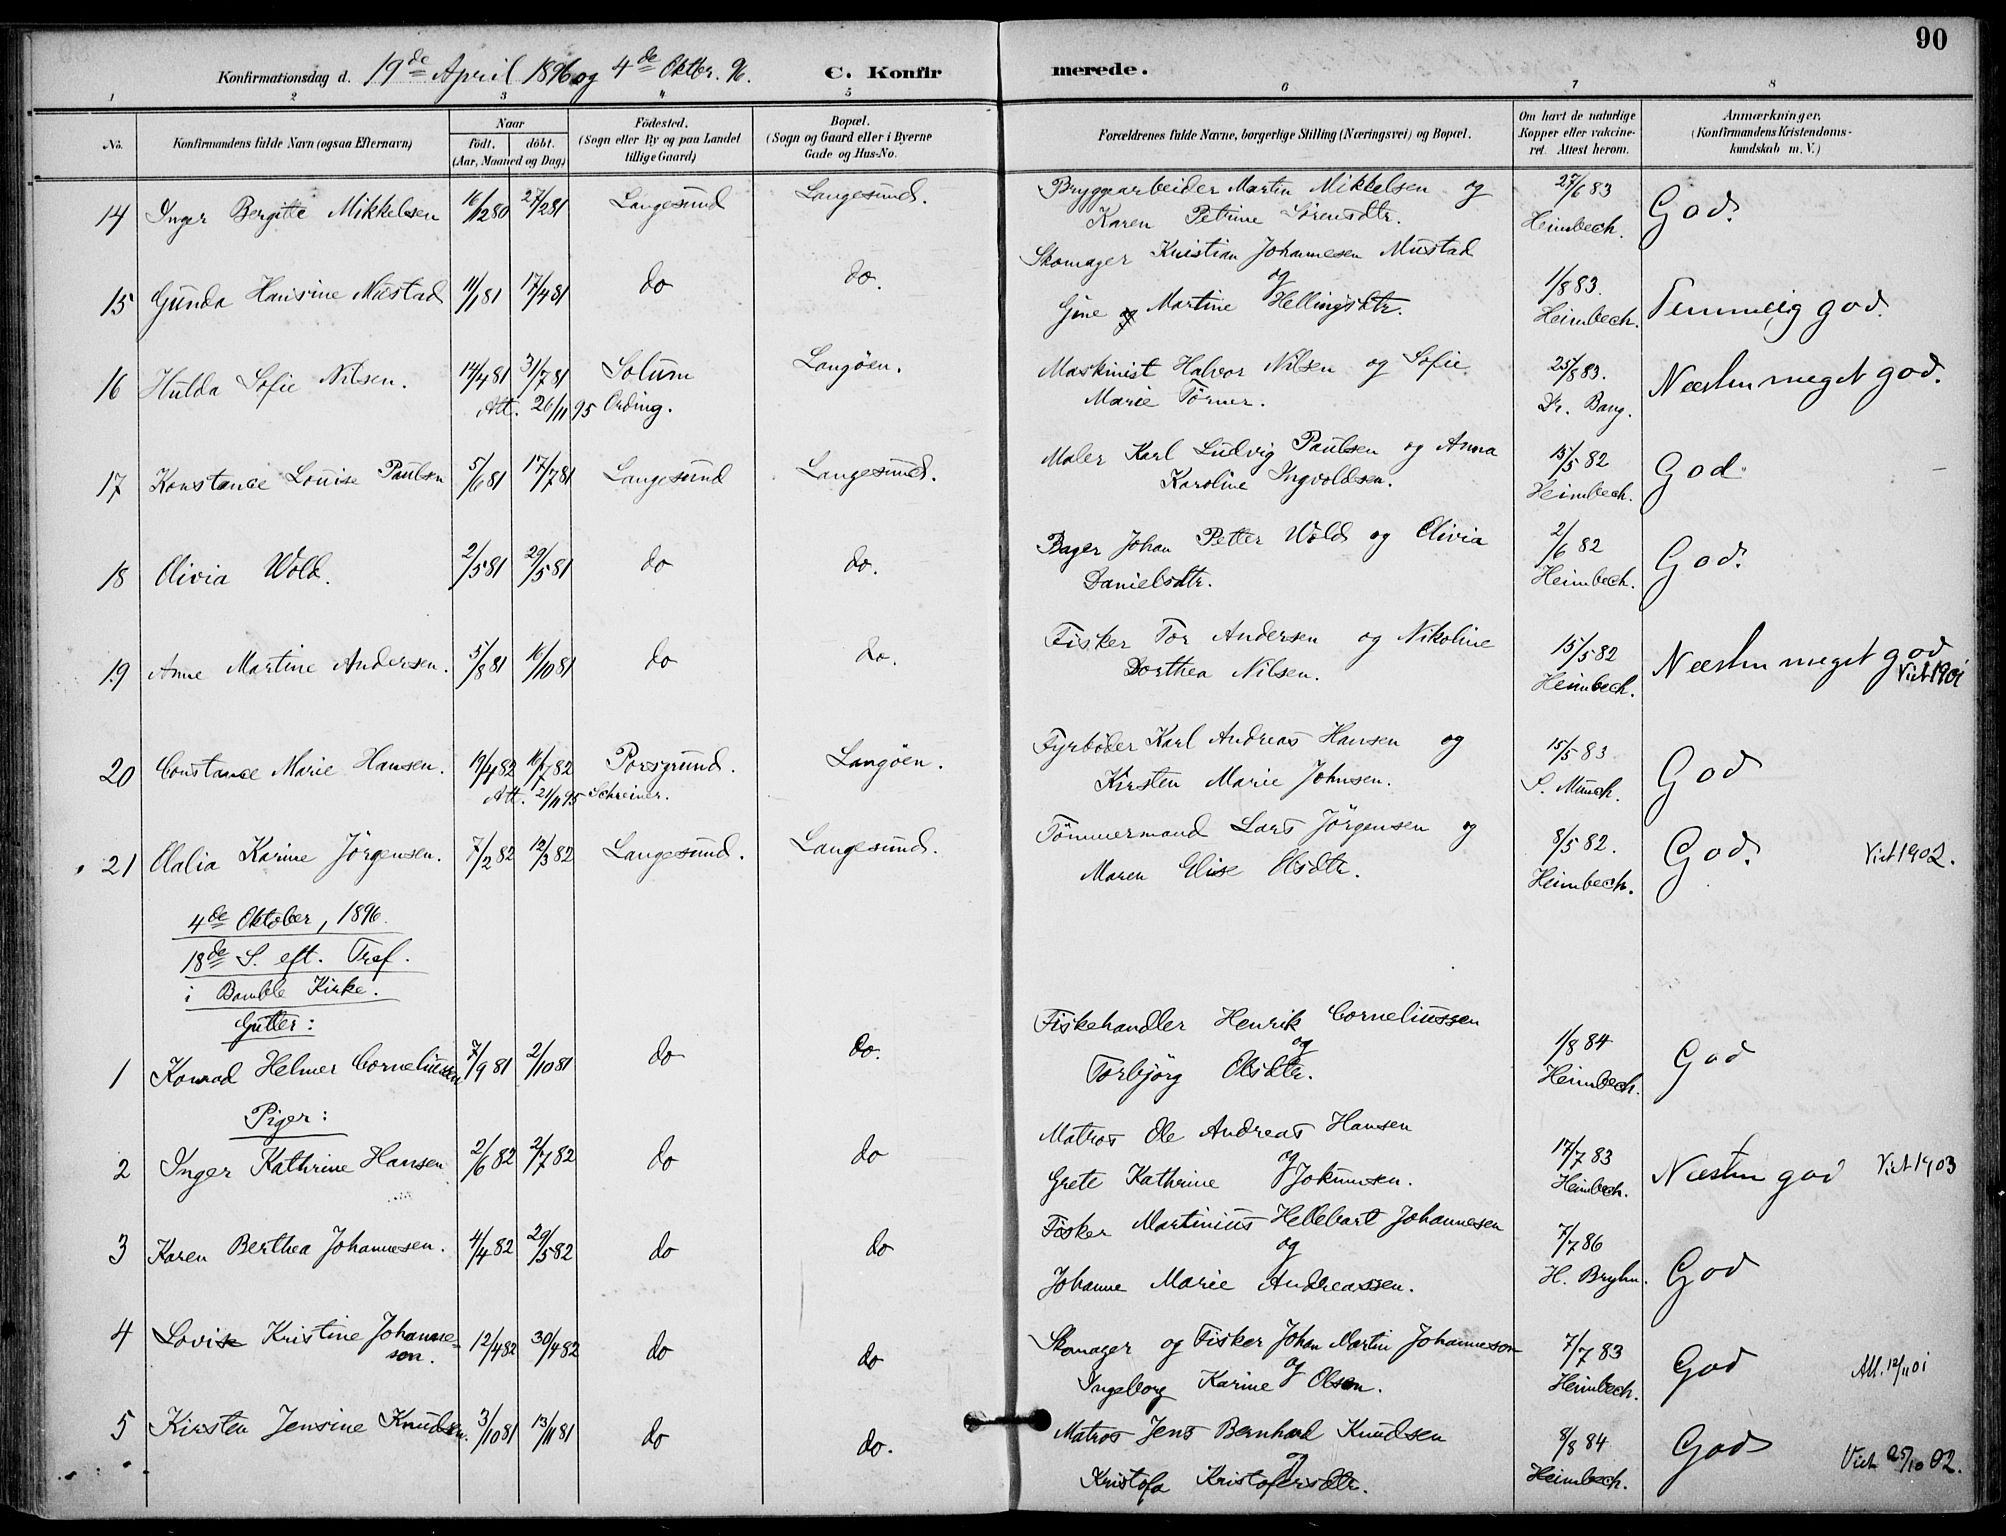 90
Konfirmationsdag d. 19de April 1896 og 4de Oktbr. 96. C. Konfirmerede.
1 2 3 4 5 6 7 8
No. Konfirmandens fulde Navn (ogsaa Efternavn) Naar født. døbt. (Aar, Maaned og Dag) Fødested. (Sogn eller By og paa Landet tillige Gaard) Bopæl. (Sogn og Gaard eller i Byerne Gade og Hus-No. Forældrenes fulde Navne, borgerlige Stilling (Næringsvei) og Bopæl. Om havt de naturlige Kopper eller vakcineret. Attest herom. Anmærkninger, (Konfirmandens Kristendomskundskab m. V.)
14 Inger Bergitte Mikkelsen 16/12 80 27/2 81 Langesund Langesund. Bryggearbeider Martin Mikkelsen og 27/6 83 God.
Karen Petrine Sörensdtr. Heimbech.
Skomager Kristian Johannesen Mustad
15 Gunda Hansine Mustad 11/1 81 17/4 81 do do. og 1/8 83. Temmelig god.
Gine og Martine Hellingsdtr. Heimbech.
16 Hulda Sofie Nilsen. 14/4 81 31/7 81 Solum Langöen. Maskinist Halvor Nilsen og Sofie 25/8 83. Næsten meget god.
Att. 26/11 95 Ording. Marie Törner. Dr. Bang.
17 Konstance Louise Paulsen 5/6 81 17/7 81 Langesund Langesund. Maler Karl Ludvig Paulsen og Anna 15/5 82 God
Karoline Ingvoldsen. Heimbech.
18 Olivia Wold. 2/5 81 29/5 81 do do. Bager Johan Petter Wold og Olivia 2/6 82 God.
Danielsdtr. Heimbech.
19 Anne Martine Andersen. 5/8 81 16/10 81 do do. Fisker Tor Andersen og Nikoline 15/5 82 Næsten meget god
Dorthea Nilsen. Heimbech. Viet 1901
20 Constance Marie Hansen. 19/4 82 16/7 82 Porsgrund. Langöen. Fyrböder Karl Andreas Hansen og 15/5 83 God
Att. 21/11 95 Schreiner. Kirsten Marie Johnsen. S. Münch.
21 Olalia Karine Jörgensen. 7/2 82 12/3 82 Langesund. Langesund. Tömmermand Lars Jörgensen og 8/5 82. God. Viet 1902.
Maren Elise Olsdtr. Heimbech.
4de Oktober, 1896.
18de S. eft. Tref.
i Bamble Kirke.
Gutter:
Fiskehandler Henrik Corneliussen
1 Konrad Helmer Corneliussen 7/9 81 2/10 81 do do. og 1/8 84 God
Torbjörg Olsdtr. Heimbech.
Piger:
Matros Ole Andreas Hansen
2 Inger Kathrine Hansen 2/6 82 2/7 82 do do og 17/7 83 Næsten god Viet 1903
Grete Kathrine Jokumsen. Heimbech.
Fisker Martinius Hellebart Johannesen
3 Karen Berthea Johannesen. 4/4 82 29/5 82 do do og 7/7 86 God
Johanne Marie Andreassen. H. Bryhn.
4 Lovise Kristine Johannesson. 12/4 82 30/4 82 do do Skomager og Fisker Johan Martin Johannesson 7/7 83 God Att. 12/11 01
og
Ingeborg Karine Olsen. Heimbech.
5 Kirsten Jensine Knudsen. 3/10 81 13/11 81 do do. Matros Jens Bernhard Knudsen 8/8 84 God Viet 25/10 02.
og
Kristofa Kristofersdtr. Heimbech.